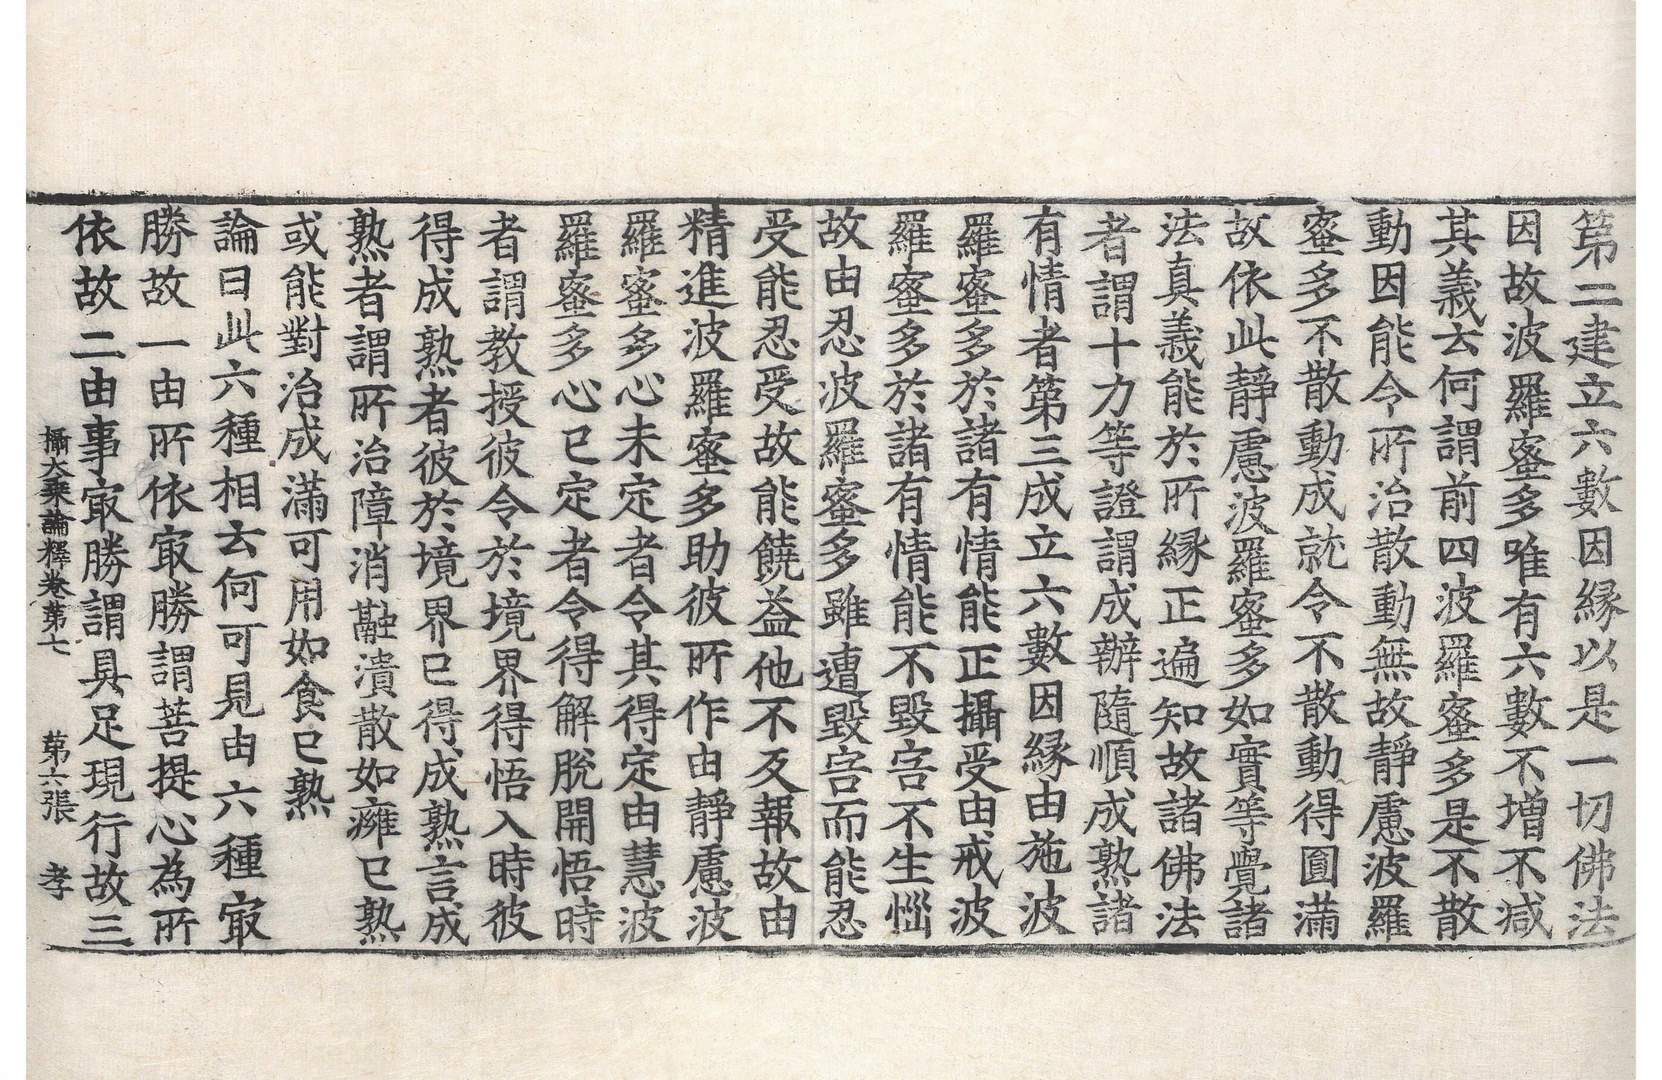 第二建立六數因緣以是一切佛法
因故波羅蜜多唯有六數不增不減
其義云何謂前四波羅蜜多是不散
動因能令所治散動無故靜慮波羅
蜜多不散動成就令不散動得圓滿
故依此靜慮波羅蜜多如實等覺諸
法真義能於所緣正遍知故諸佛法
者謂十力等證謂成辦隨順成熟諸
有情者第三成立六數因緣由施波
羅蜜多於諸有情能正攝受由戒波
羅蜜多於諸有情能不毀害不生惱
故由忍波羅蜜多雖遭毀害而能忍
受能忍受故能饒益他不反報故由
精進波羅蜜多助彼所作由靜慮波
羅蜜多心未定者令其得定由慧波
羅蜜多心已定者令得解脫開悟時
者謂教授彼令於境界得悟入時彼
得成熟者彼於境界已得成熟言成
熟者謂所治障消融潰散如癰已熟
或能對治成滿可用如食已熟
論曰此六種相云何可見由六種㝡
勝故一由所依㝡勝謂菩提心為所
依故二由事㝡勝謂具足現行故三
攝大乘論釋卷第七 第六張 孝